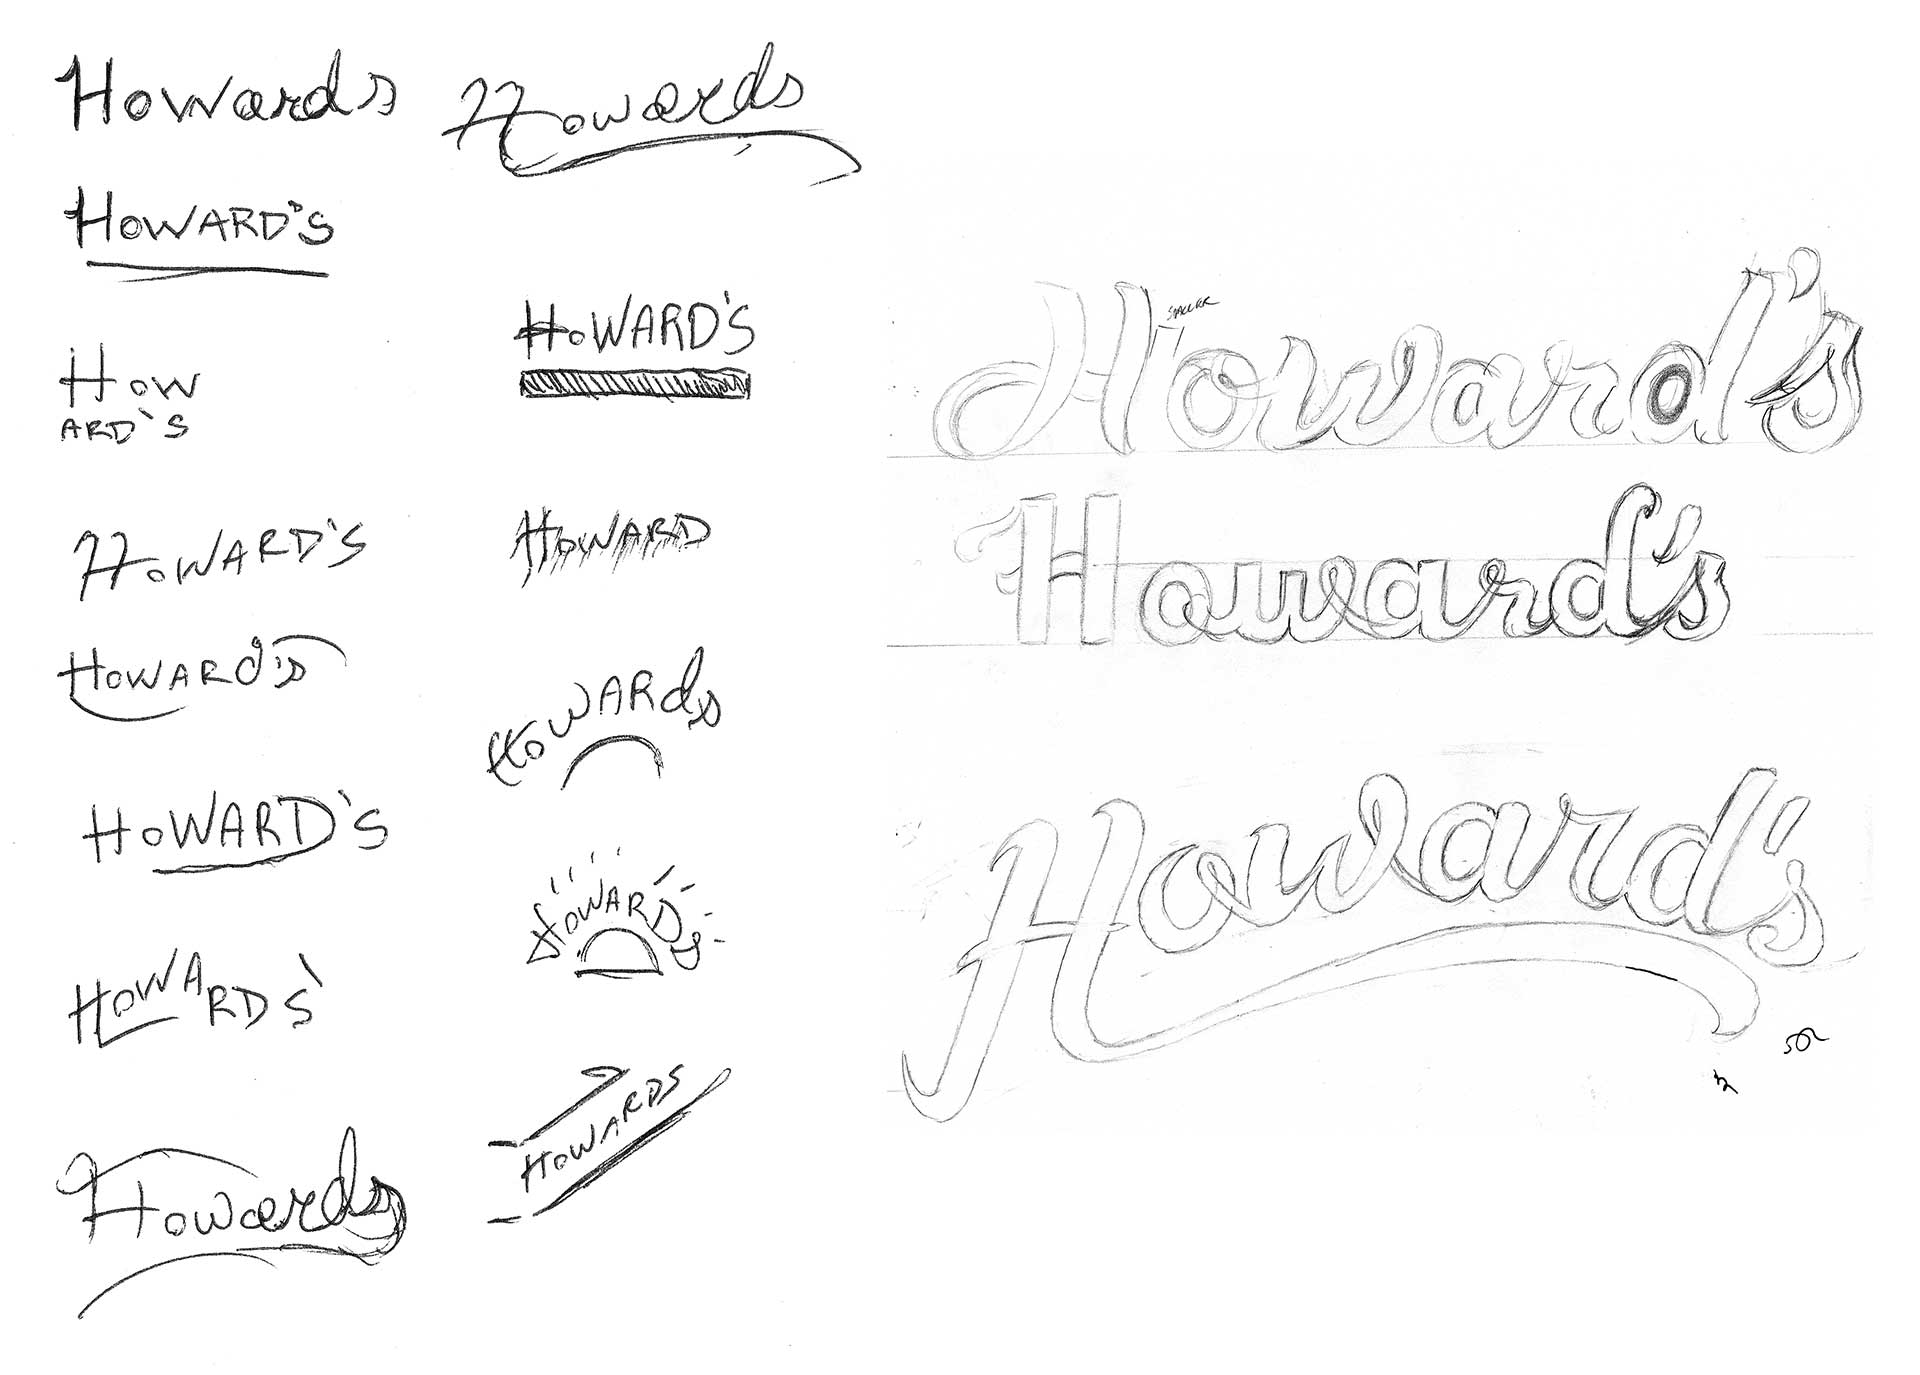 Howards
HOWARD'S
HOW
ARD'S
HOWARD'S
HOWARD'S
HOWARD'S
HOWARDS'
Howards
Howards
HOWARD'S
HOWARD
HOWARds
HOWARDS
HOWARDS
Howard's
Howard's
Howard's